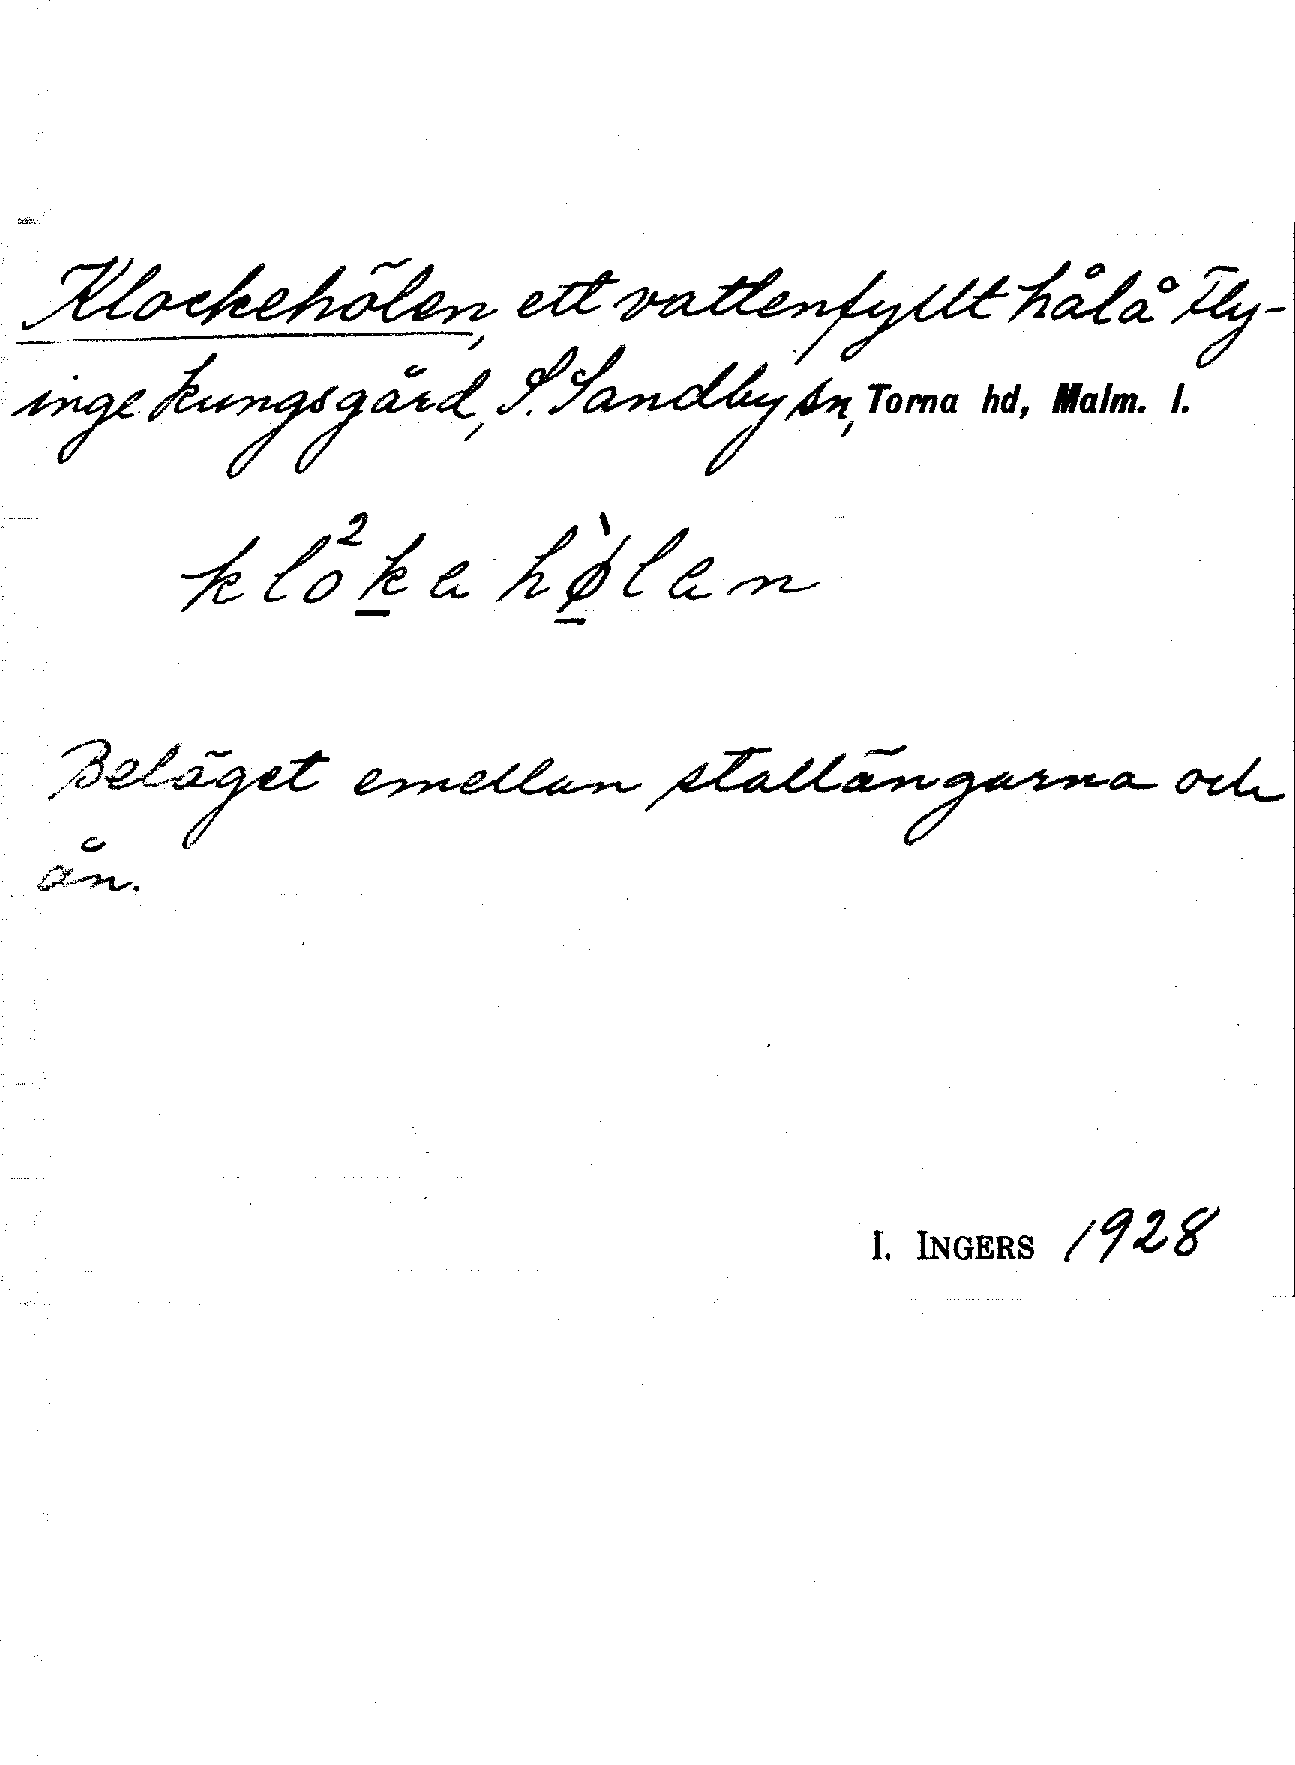 Klockehölen, ett vattenfyllt hål å Fly-
inge kungsgård, S. Sandby sn, Torna hd, Malm. l.
klo²ka hø̀lan
Beläget emellan stallängarna och
ån.
I. INGERS 1928